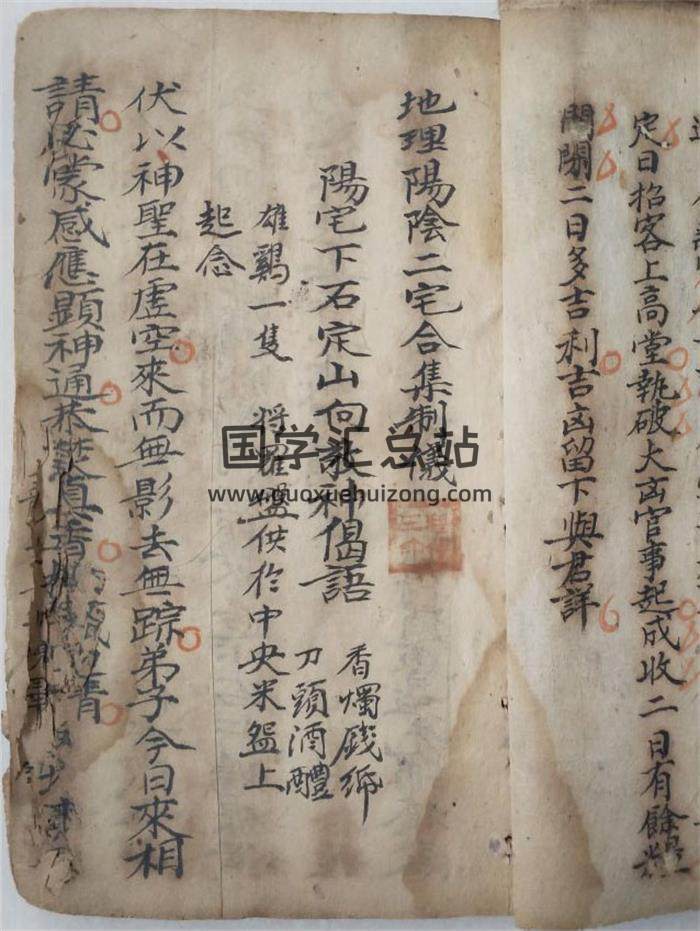 定日招客上高堂執破大凶官事起成收二日有餘糧
門閉二日多吉利吉凶留下與君詳
地理陽陰二宅合集制儀
陽宅下石定山向敬神偈語
香燭錢紙
刀頭酒醴
雄鷄一隻 將羅盤供於中央米盌上
起念
伏以神聖在虛空來而無影去無踪弟子今日來相
請必蒙感應顯神通恭焚真香
国学汇总站
www.guoxuehuizong.com